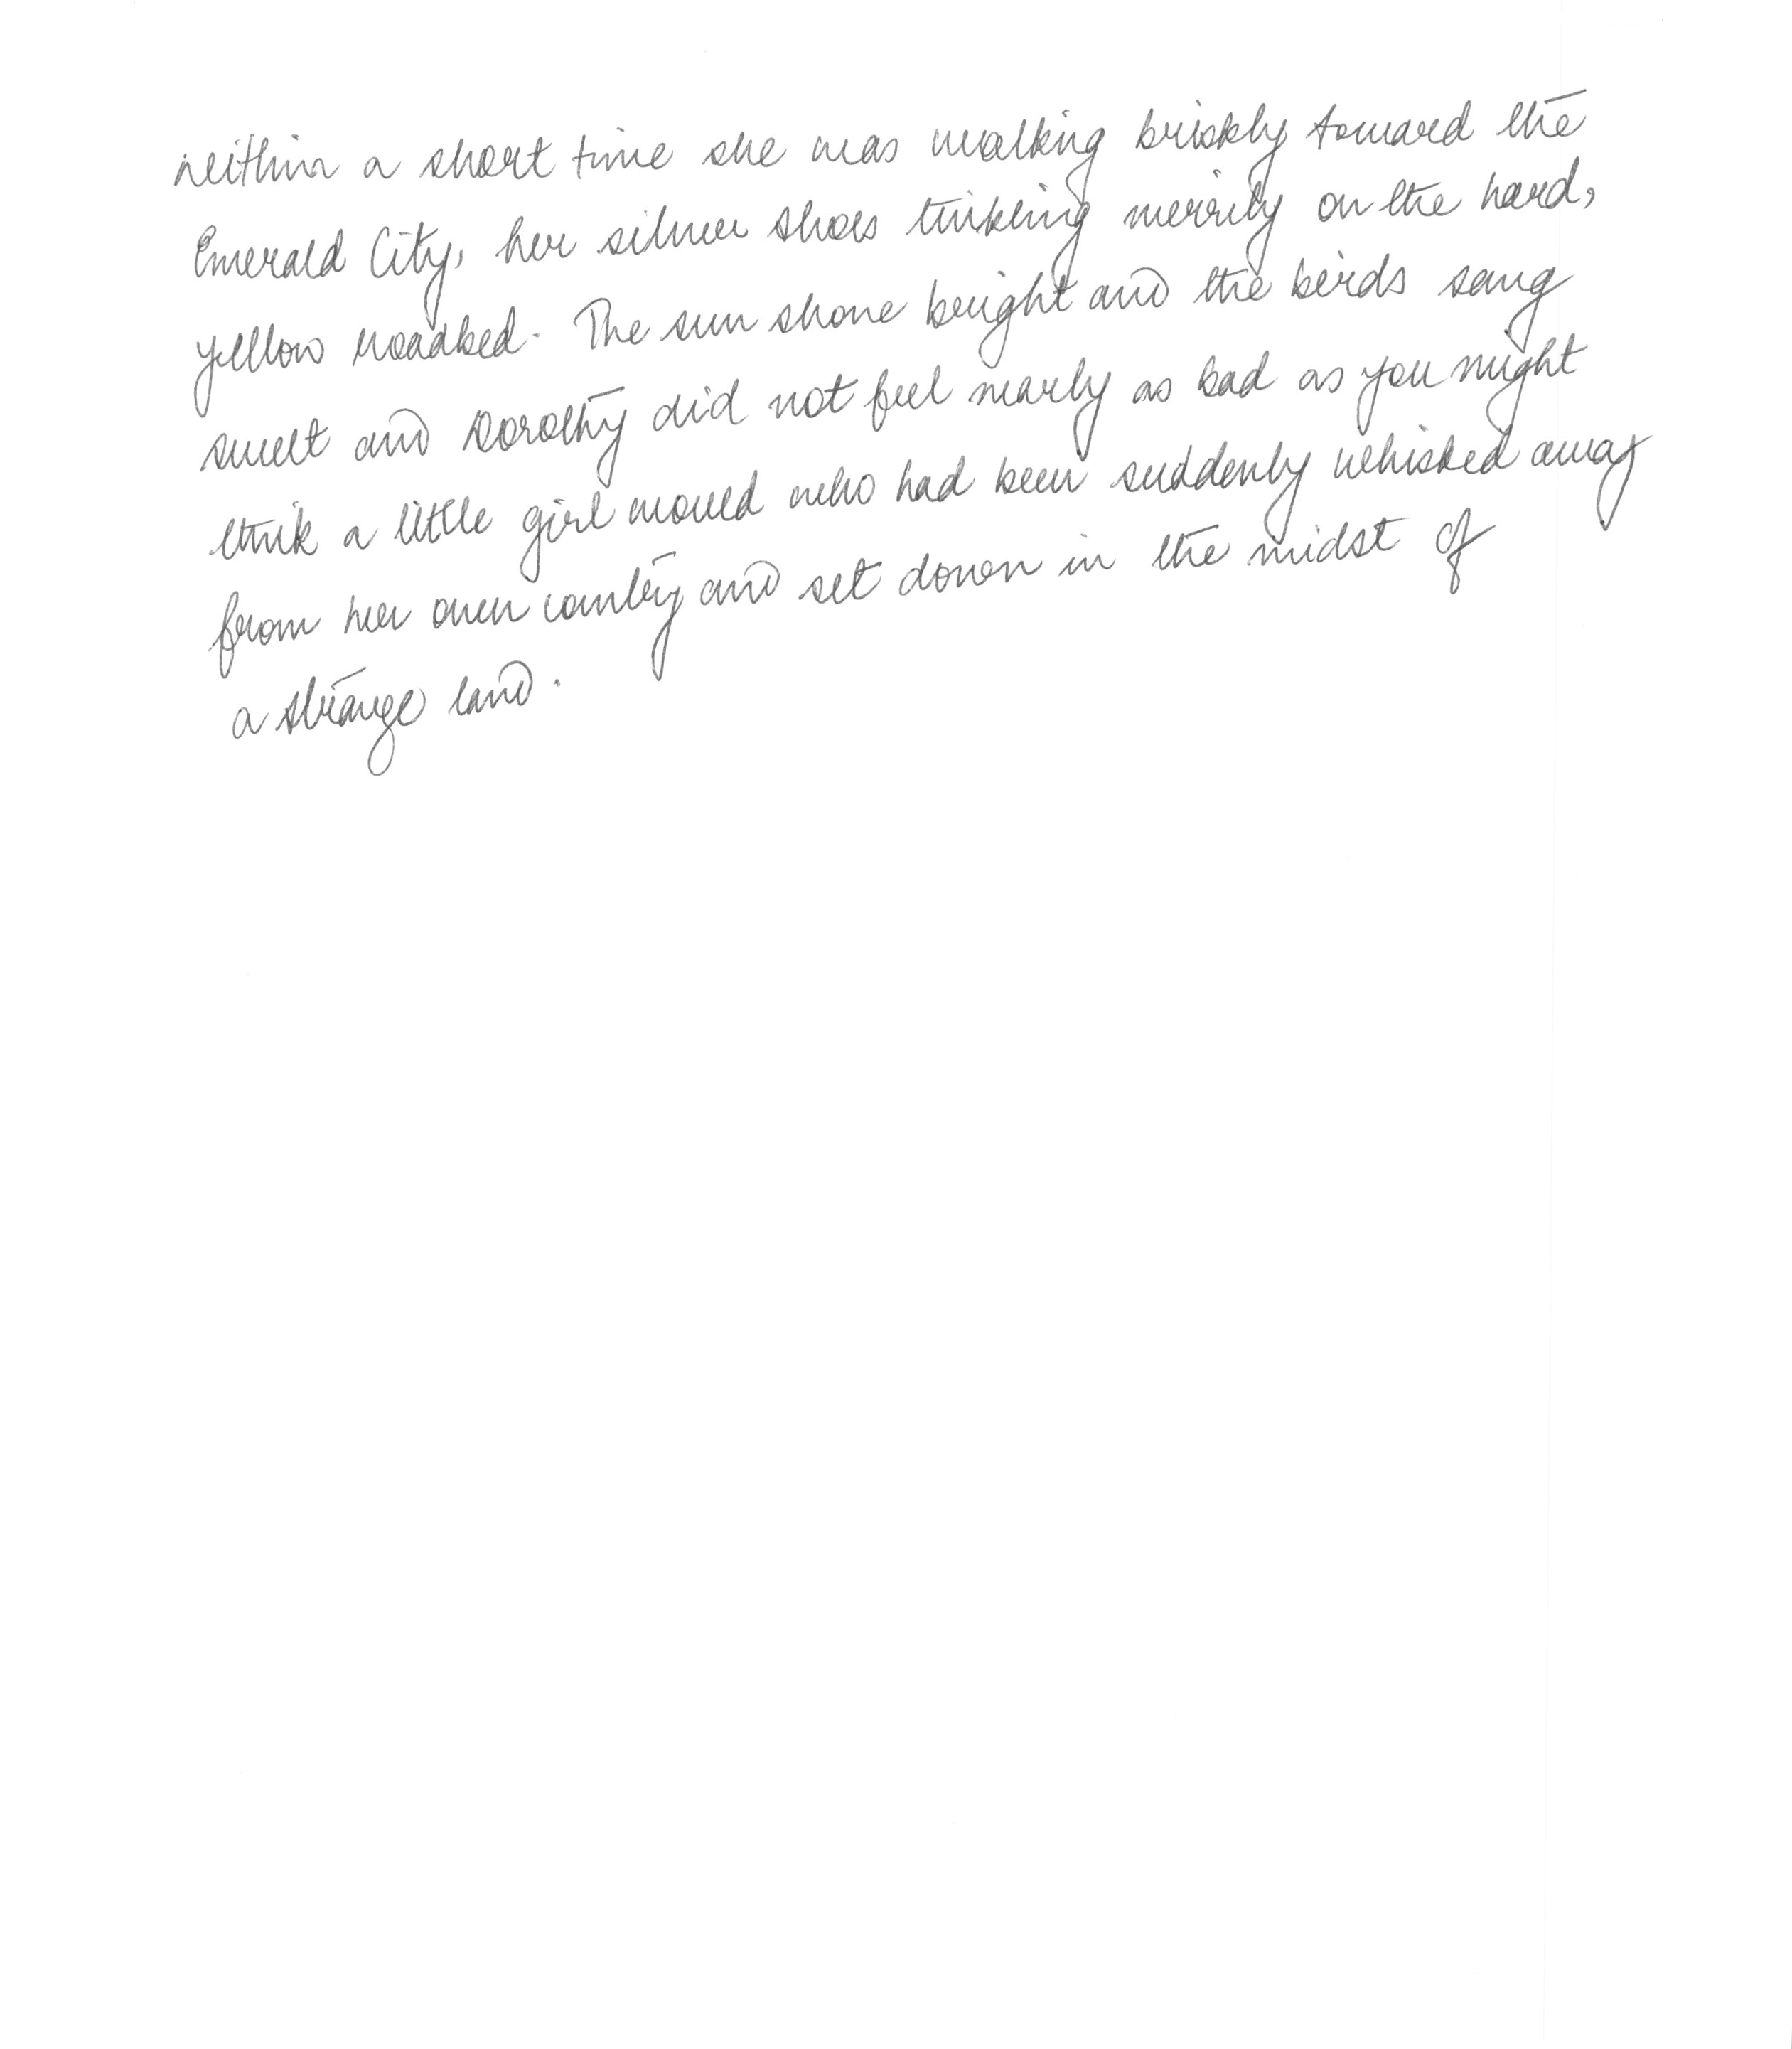 within a short time she was walking briskly toward the
Emerald City, her silver shoes tinkling merrily on the hard,
yellow roadbed. The sun shone bright and the birds sang
sweet and Dorothy did not feel nearly as bad as you might
think a little girl would who had been suddenly whisked away
from her own country and set down in the midst of
a strange land.